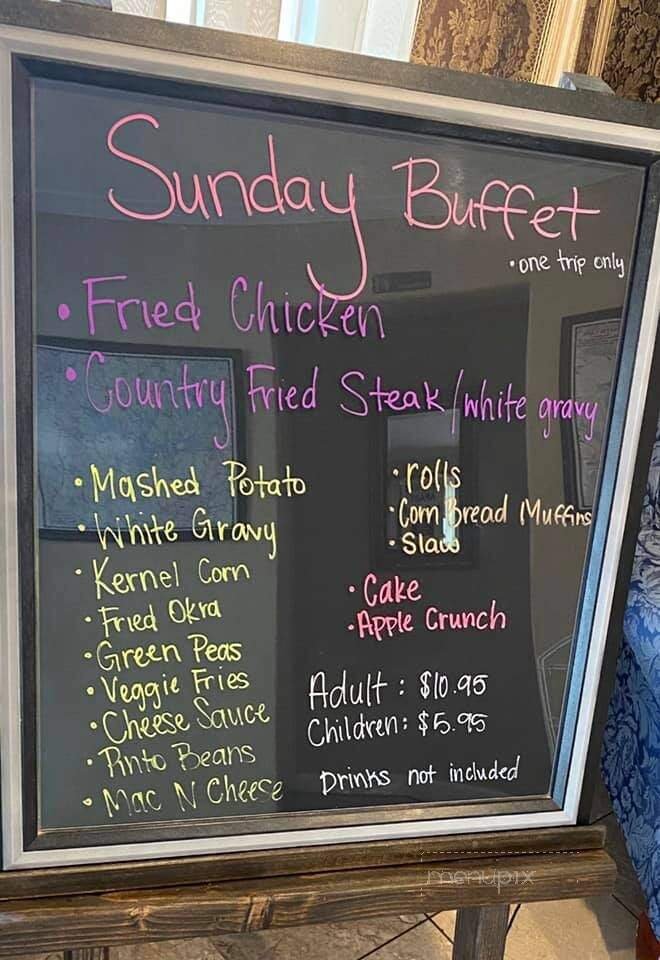 Sunday Buffet
• one trip only
• Fried Chicken
• Country Fried Steak/white gravy
• Mashed Potato
• White Gravy
• Kernel Corn
• Fried Okra
• Green Peas
• Veggie Fries
• Cheese Sauce
• Pinto Beans
• Mac N Cheese
• rolls
• Corn Bread Muffins
• Slaw
• Cake
• Apple Crunch
Adult : $10.95
Children: $5.95
Drinks not included
menupix